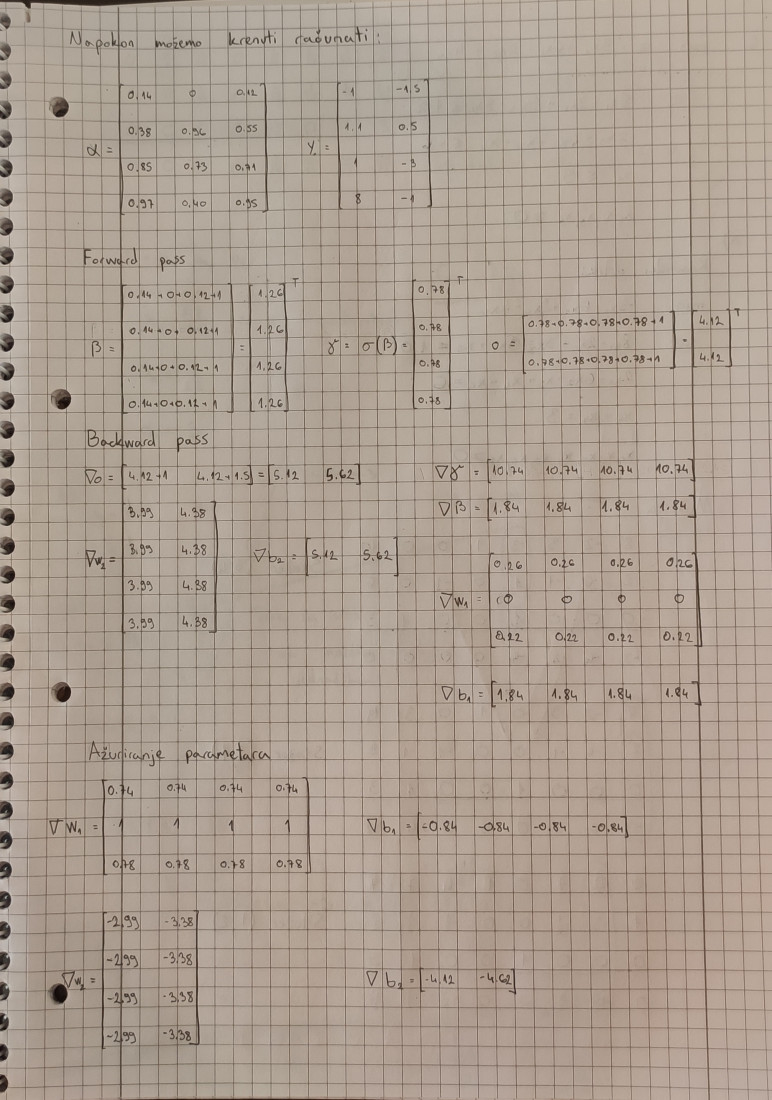 Napokon možemo krenuti računati:
α = [0.14 0 0.12
0.38 0.96 0.55
0.85 0.73 0.71
0.97 0.40 0.95]
Y = [-1 -1.5
1.1 0.5
1 -3
8 -1]
Forward pass
β = [0.14+0+0.12+1
0.14+0+0.12+1
0.14+0+0.12+1
0.14+0+0.12+1] = [1.26
1.26
1.26
1.26]ᵀ
γ = σ(β) = [0.78
0.78
0.78
0.78]ᵀ
o = [0.78+0.78+0.78+0.78+1
0.78+0.78+0.78+0.78+1] = [4.12
4.12]ᵀ
Backward pass
∇o = [4.12+1 4.12+1.5] = [5.12 5.62]
∇w₂ = [3.99 4.38
3.99 4.38
3.99 4.38
3.99 4.38]
∇b₂ = [5.12 5.62]
∇γ = [10.74 10.74 10.74 10.74]
∇β = [1.84 1.84 1.84 1.84]
∇w₁ = [0.26 0.26 0.26 0.26
0 0 0 0
0.22 0.22 0.22 0.22]
∇b₁ = [1.84 1.84 1.84 1.84]
Ažuriranje parametara
∇w₁ = [0.74 0.74 0.74 0.74
1 1 1 1
0.78 0.78 0.78 0.78]
∇b₁ = [-0.84 -0.84 -0.84 -0.84]
∇w₂ = [-2.99 -3.38
-2.99 -3.38
-2.99 -3.38
-2.99 -3.38]
∇b₂ = [-4.12 -4.62]